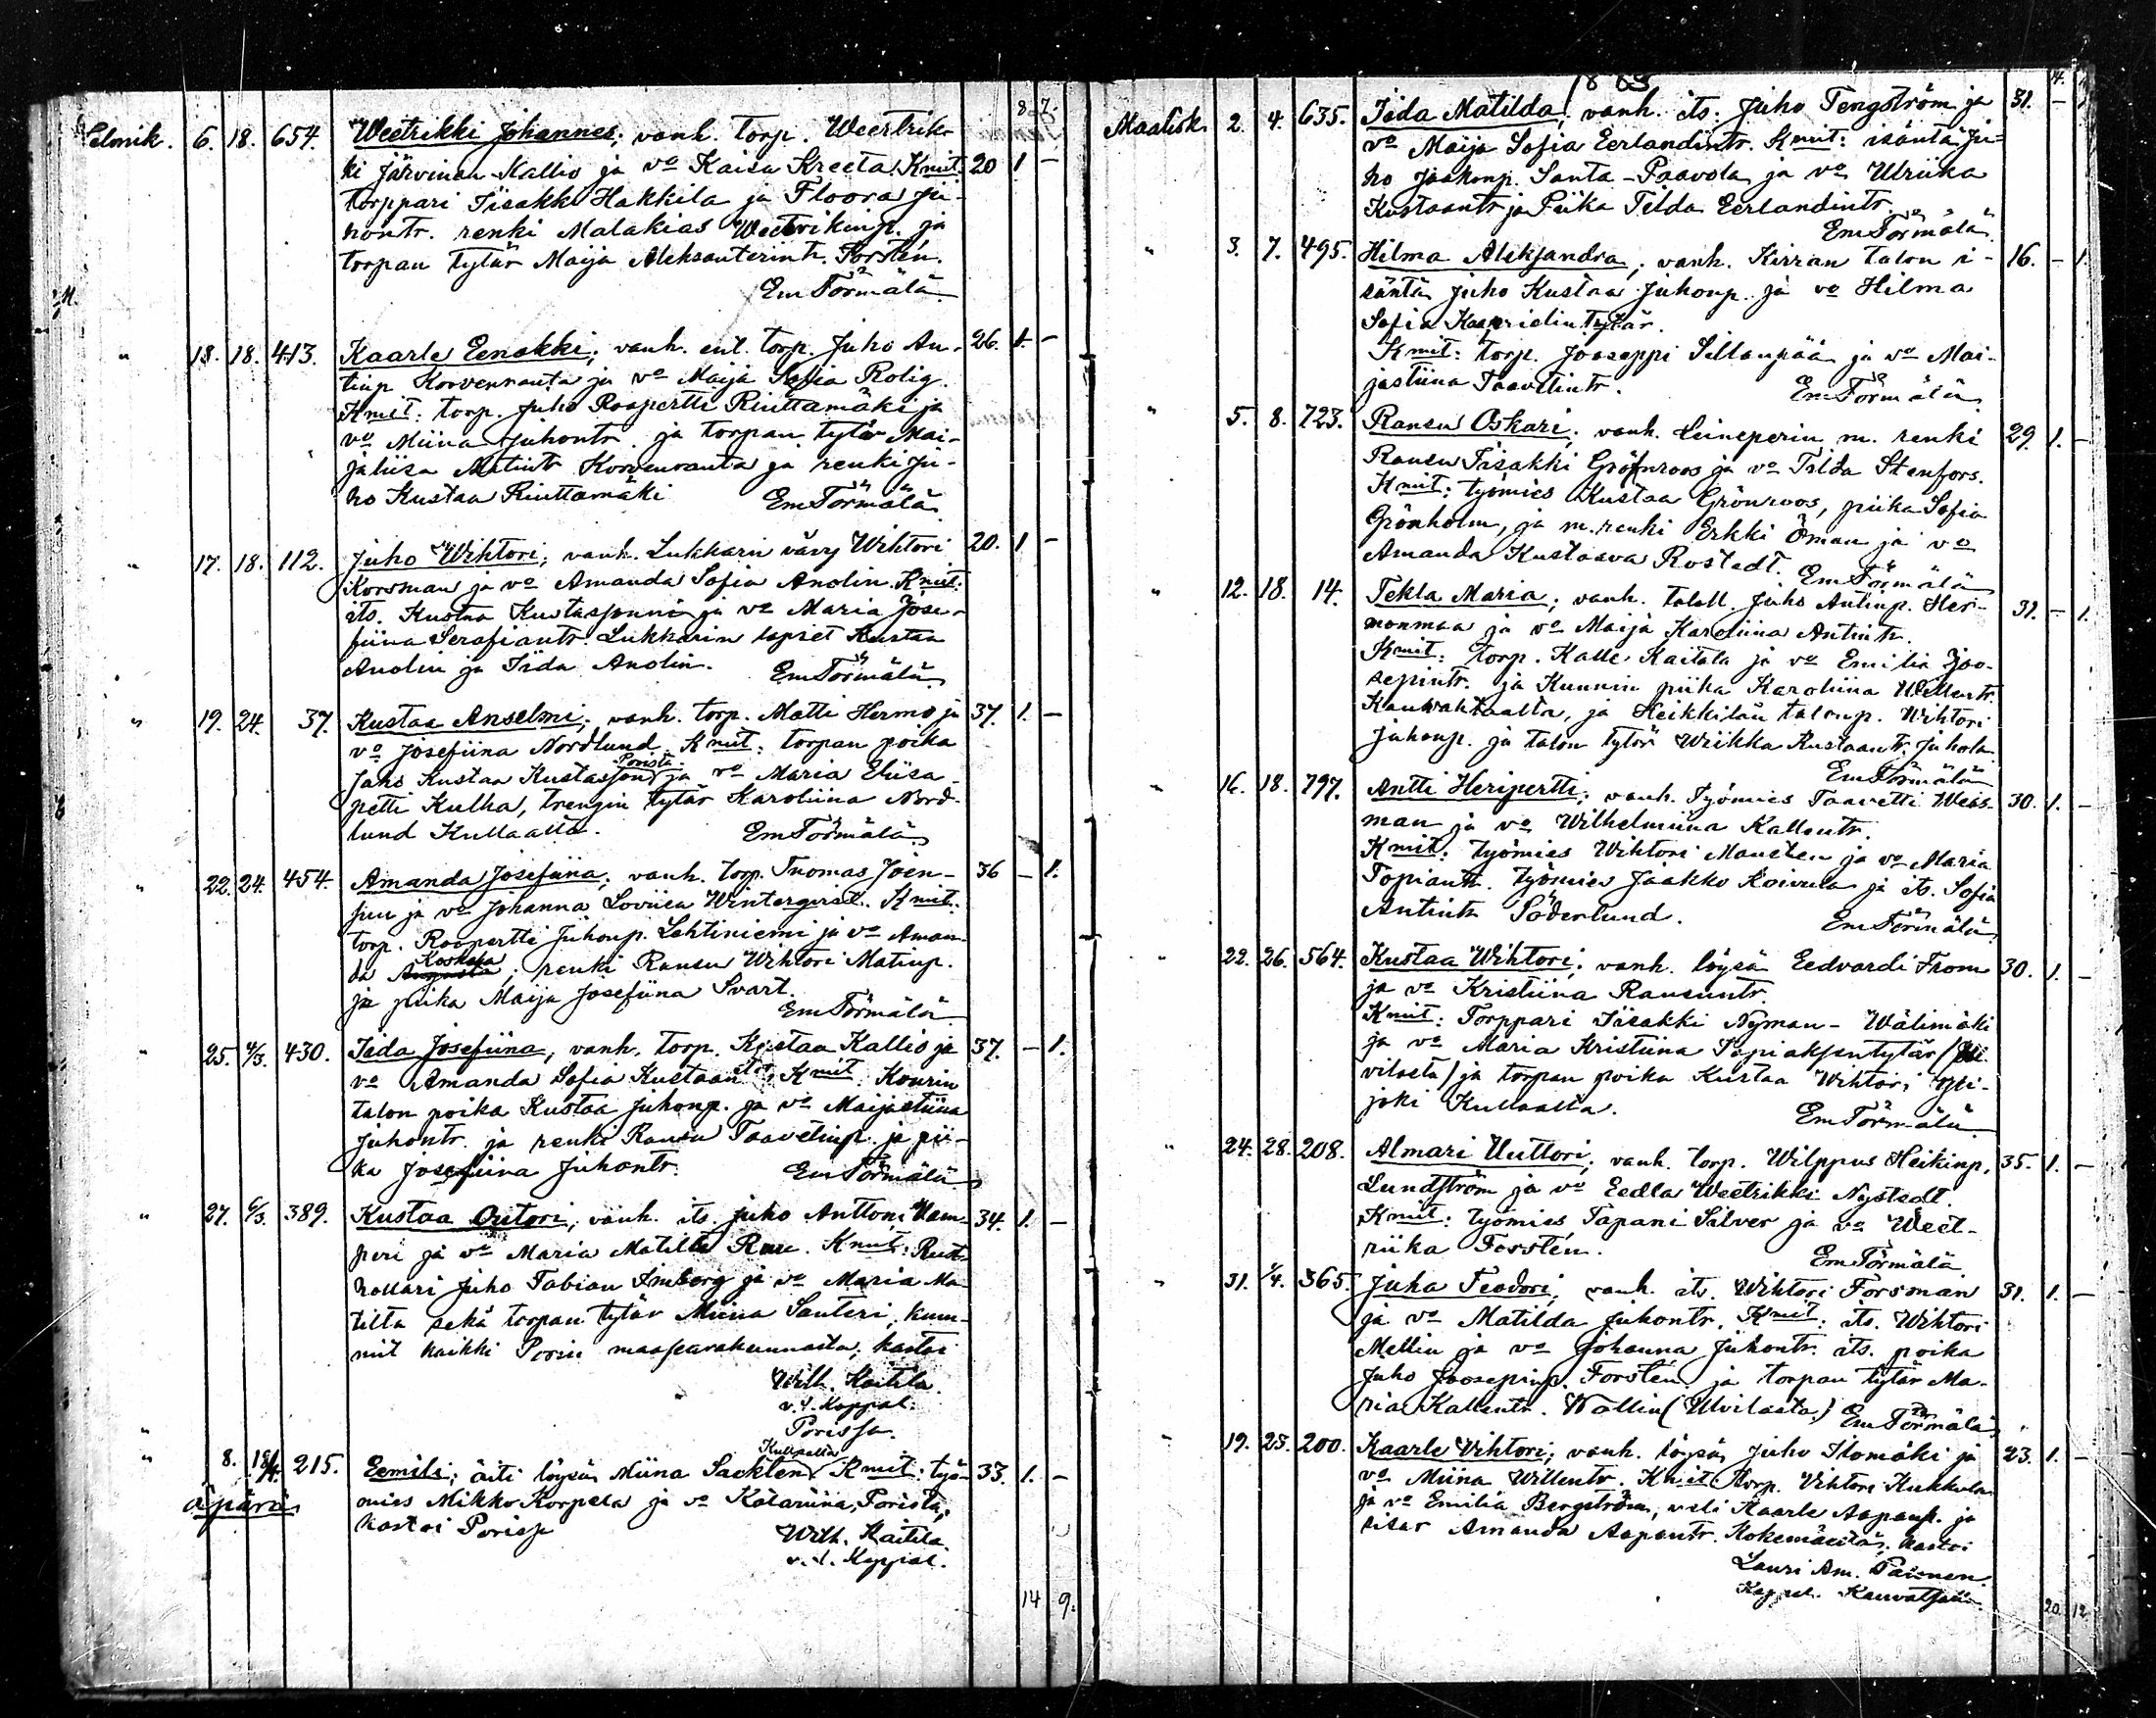 8 7.
Helmik. 6. 18. 654. Weetrikki Johannes; vanh. torp. Weetrik-
ki Järvinen Kallio ja vo Kaisa Kreeta. Kmit. 20 1 -
torppari Iisakki Hakkila ja Floora Ju-
hontr. renki Malakias Weetrikinp. ja
torpan tytär Maija Aleksanterintr. Forstén.
Em Törmälä
" 13. 18. 413. Kaarle Eenokki; vanh. ent. torp. Juho An- 26. 1. -
tinp. Korvenrauta ja vo Maija Sofia Rolig.
Kmit: torp. Juho Roopertti Riuttamäki ja
vo Miina Juhontr. ja torpan tytär Mai-
jaliisa Matintr. Korvenrauta ja renki Ju-
ho Kustaa Riuttamäki Em Törmälä
" 17. 18. 112. Juho Wihtori; vanh. Lukkarin vävy Wihtori 20. 1 -
Korsman ja vo Amanda Sofia Anolin. Kmit:
its. Kustaa Kustassonni ja vo Maria Jose-
fiina Serafiantr. Lukkarin lapset Kustaa
Anolin ja Iida Anolin. Em Törmälä
" 19. 24. 37. Kustaa Anselmi; vanh. torp. Matti Hermo ja 37. 1. -
vo Josefiina Nordlund. Kmit: torpan poika
Porista
Juho Kustaa Kustasson ja vo Maria Eliisa-
petti Kulha, trengin tytär Karoliina Nord-
lund Kullaalta. Em Törmälä
" 22. 24. 454. Amanda Josefiina; vanh. torp. Tuomas Joen- 36 - 1.
suu ja vo Johanna Loviisa Wintergirst. Kmit:
torp. Roopertti Juhonp. Lehtiniemi ja vo Aman-
Koskela
da Augusta; renki Ransu Wihtori Matinp.
ja piika Maija Josefiina Svart.
Em Törmälä
" 25. 4/3. 430. Iida Josefiina, vanh. torp. Kustaa Kallio ja 37. - 1.
vo Amanda Sofia Kustaantr. Kmit: Kourin
talon poika Kustaa Juhonp. ja vo Maijastiina
Juhontr. ja renki Ransu Taavetinp. ja pii-
ka Josefiina Juhontr. Em Törmälä
" 27. 6/3. 389. Kustaa Ortori; vanh. its. Juho Anttoni Wam- 34. 1. -
peri ja vo Maria Matilta Kmit: Rust-
hollari Juho Fabian Amberg ja vo Maria Ma-
tilta sekä torpan tytär Miina Santeri, kum-
mit kaikki Porin maaseurakunnasta; kastoi
Wilh. Kaitila.
v. t. Kappal.
Porissa.
" 8. 18/4. 215. Eemili; äiti löysä Miina Saeklen Kmit: työ- 33. 1. -
Kullaalta
äpärä mies Mikko Korpela ja vo Katariina, Porista,
kastoi Porissa Wilh. Kaitila.
v. t. Kappal.
14 9.
1883
14.
Maalisk. 2. 4. 635. Iida Matilda vanh. its. Juho Tengström ja 31. - 1
vo Maija Sofia Eerlandintr. Kmit: isäntä Ju-
ho Jaakonp. Santa-Paavola ja vo Ulriika
Kustaantr. ja Piika Tilda Eerlandintr.
Em Törmälä
" 3. 7. 495. Hilma Aleksandra; vanh. Kirran talon i- 16. - 1.
säntä Juho Kustaa Juhonp. ja vo Hilma
Sofia Kaaprielin tytär.
Kmit: torp. Jooseppi Sillanpää ja vo Mai-
jastiina Taavetintr. Em Törmälä
" 5. 8. 723. Ransu Oskari; vanh. Leineperin m. renki 29. 1. -
Ransu Iisakki Grönroos ja vo Tilda Stenfors.
Kmit: työmies Kustaa Grönroos, piika Sofia
Grönholm, ja m. renki Erkki Öman ja vo
Amanda Kustaava Rostedt. Em Törmälä
" 12. 18. 14. Tekla Maria; vanh. taloll. Juho Antinp. Her- 31. - 1.
monmaa ja vo Maija Karoliina Antintr.
Kmit: torp. Kalle Kaitala ja vo Emilia Joo-
sepintr. ja Kunnin piika Karoliina Willentr.
Kauvahtaalta, ja Heikkilän talonp. Wihtori
Juhonp. ja talon tytär Wiikka Kustaantr. Juhola
Em Törmälä
" 16. 18. 797. Antti Heripertti; vanh. Työmies Taavetti Weis- 30. 1. -
man ja vo Wilhelmiina Kallentr.
Kmit: työmies Wihtori Mansten ja vo Maria
Topiantr. työmies Jaakko Koivula ja its. Sofia
Antintr. Söderlund. Em Törmälä
" 22. 26. 564. Kustaa Wihtori; vanh. löysä Eedvardi From 30. 1. -
ja vo Kristiina Ransuntr.
Kmit: Torppari Iisakki Nyman-Wälimäki
ja vo Maria Kristiina Topiaksentytär (Ul-
vilasta) ja torpan poika Kustaa Wihtori Yli-
joki Kullaalta. Em Törmälä
" 24. 28. 208. Almari Uuttori; vanh. torp. Wilppus Heikinp. 35. 1. -
Lundström ja vo Eedla Weetrikki Nystedt.
Kmit: työmies Tapani Silver ja vo Weet-
riika Forstén. Em Törmälä
" 31. 1/4. 365. Juha Teodori; vanh. its. Wihtori Forsman 31. 1. -
ja vo Matilda Juhontr. Kmit: its. Wihtori
Mellin ja vo Johanna Juhontr. its. poika
Juho Joosepinp. Forstén ja torpan tytär Ma-
ria Kallentr. Wallin (Ulvilasta.) Em Törmälä
" 19. 25. 200. Kaarle Vihtori; vanh. löysä Juho Ilomäki ja 23. 1. -
vo Miina Willentr. Kmit: torp. Vihtori Kukkula
ja vo Emilia Bergström, veli Kaarle Aapanp. ja
sisar Amanda Aapantr. Kokemäeltä; kastoi
Lauri Am. Päivinen.
Kappal. Kauvatsan
20. 12